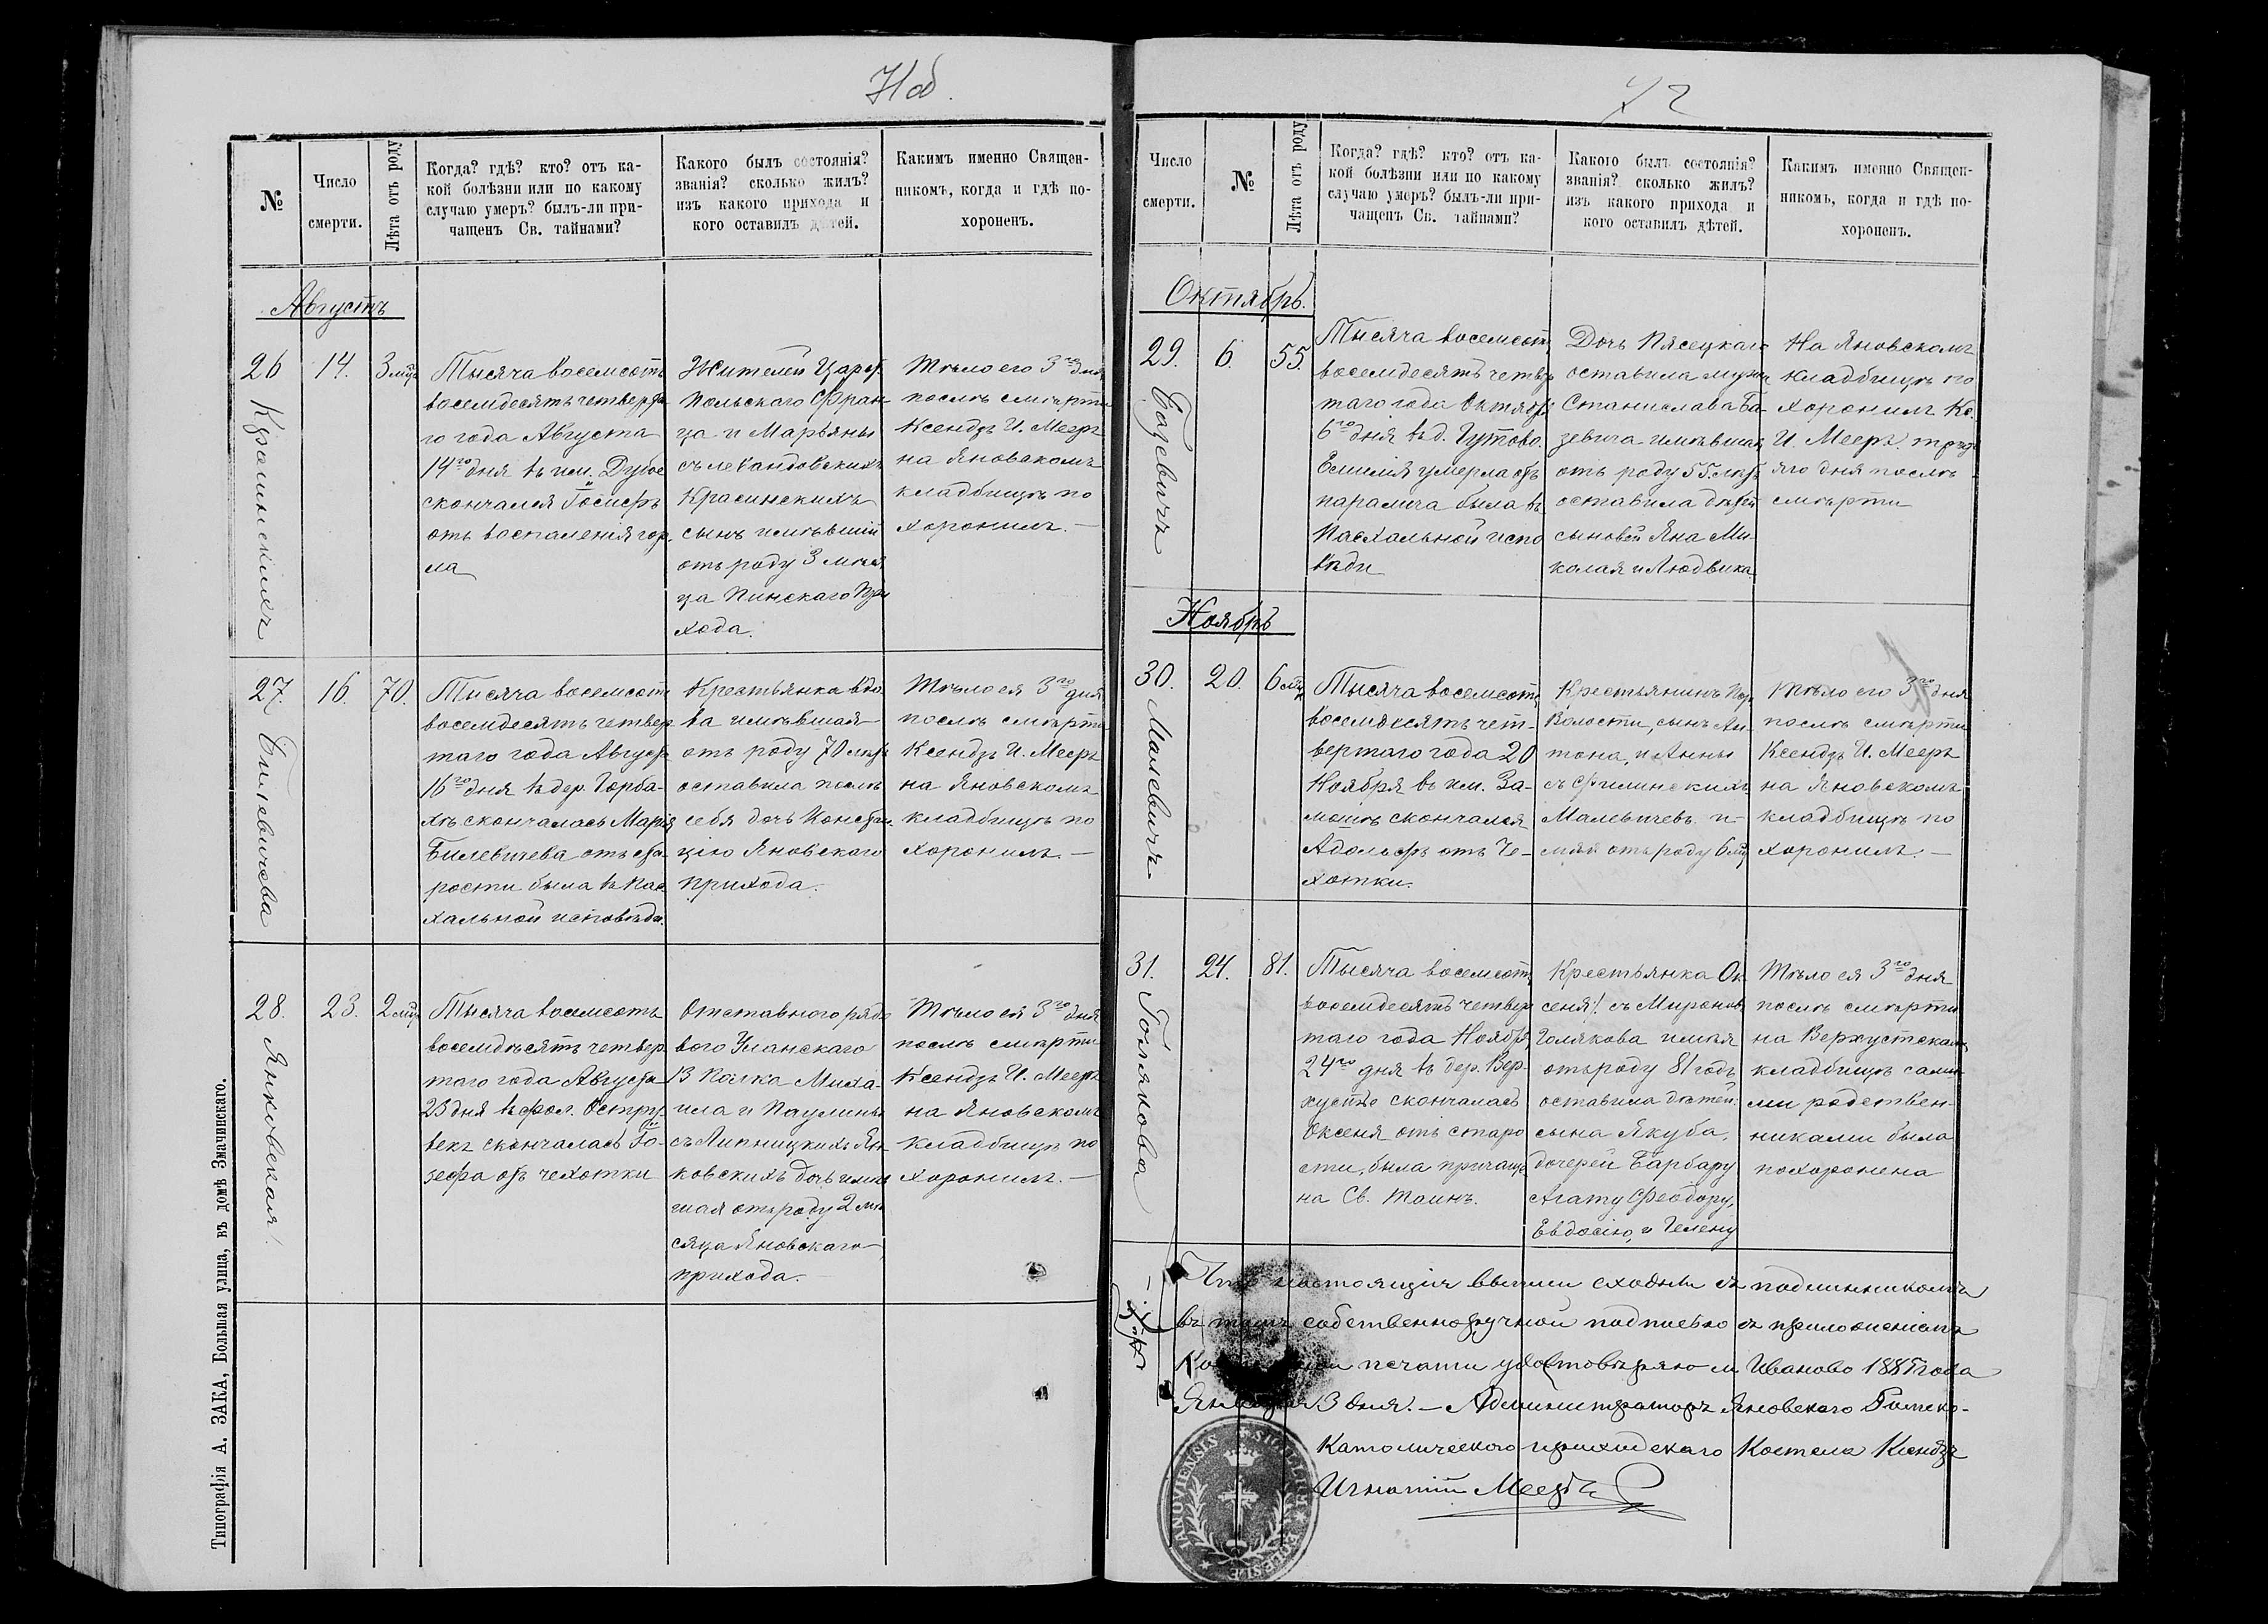 71 об.
№
Число
смерти.
Лѣта отъ роду
Когда? гдѣ? кто? отъ ка-
кой болѣзни или по какому
случаю умеръ? былъ-ли при-
чащенъ Св. тайнами?
Какого былъ состоянія?
званія? сколько жилъ?
изъ какого прихода и
кого оставилъ дѣтей.
Какимъ именно Священ-
никомъ, когда и гдѣ по-
хороненъ.
Августъ
26
Красинскихъ
14.
3 мца
Тысяча восемсотъ
восемдесятъ четверта
го года Августа
14го дня въ им. Дубое
скончался Іосифъ
отъ воспаленія гор
ла
Жителей Цар.
Польскаго Фран
ца и Марьяны
съ
Красинскихъ
сынъ имѣвшій
отъ роду 3 мѣся
ца Пинскаго При
хода.
Тѣло его 3го дня
послѣ смѣрти
Ксендзъ И. Мееръ
на Яновскомъ
кладбищѣ по
хоронилъ. —
27.
Билевичева
16.
70.
Тысяча восемсотъ
восемдесятъ четвер
таго года Августа
16го дня въ дер. Горба-
хѣ скончалась Марія
Билевичева отъ ста
рости была въ Пас
хальной исповѣди.
Крестьянка вдо
ва имѣвшая
отъ роду 70 лѣтъ
оставила послѣ
себя дочь Констан
цію Яновскаго
прихода.
Тѣло ея 3го дня
послѣ смѣрти
Ксендзъ И. Мееръ
на Яновскомъ
кладбищѣ по
хоронилъ. —
28.
Янковская
23.
2 мца
Тысяча восемсотъ
восемдѣсятъ четвер
таго года Августа
23 дня въ фол. Остру
векъ скончалась Іо-
зефа отъ чехотки
Отставного рядо
вого Уланскаго
13 Полка Миха-
ила и Паулины
съ Липницкихъ Ян
ковскихъ дочь имѣв
шая отъ роду 2 мѣ
сяца Яновскаго
прихода.
Тѣло ея 3го дня
послѣ смѣрти
Ксендзъ И. Мееръ
на Яновскомъ
кладбищѣ по
хоронилъ. —
Типографія А. ЗАКА, Большая улица, въ домѣ Змачинскаго.
72
Число
смерти.
№
Лѣта отъ роду
Когда? гдѣ? кто? отъ ка-
кой болѣзни или по какому
случаю умеръ? былъ-ли при-
чащенъ Св. тайнами?
Какого былъ состоянія?
званія? сколько жилъ?
изъ какого прихода и
кого оставилъ дѣтей.
Какимъ именно Священ-
никомъ, когда и гдѣ по-
хороненъ.
Октябрь.
29.
Базевичъ
6.
55.
Тысяча восемсотъ
восемдесятъ четвер
таго года Октября
6го дня въ д. Гутово.
Емилія умерла отъ
паралича была въ
Пасхальной испо
вѣди
Дочь Пясецкаго
оставила мужа
Станислава Ба-
зевича имѣвшая
отъ роду 55. лѣтъ
оставила дѣтей
сыновей Яна Ми-
колая и Людвика
На Яновскомъ
кладбищѣ по
хоронилъ Кс.
И. Мееръ треть
яго дня послѣ
смѣрти
Ноябрь
30.
Малевичъ
20.
6 мца
Тысяча восемсотъ
восемдесятъ чет-
вертаго года 20
Ноября въ им. За-
мошѣ скончался
Адольфъ отъ Че-
хотки.
Крестьянинъ
Волости, сынъ Ан-
тона, и Анны
съ Филинскихъ
Малевичевъ и-
мѣя отъ роду 6 мц
Тѣло его 3го дня
послѣ смѣрти
Ксендзъ И. Мееръ
на Яновскомъ
кладбищѣ по
хоронилъ. —
31.
Голякова
24.
81.
Тысяча восемсотъ
восемдесятъ четвер
таго года Ноября
24го дня въ дер. Вер-
хустье скончалась
Оксеня отъ старо
сти, была причаще
на Св. Таинъ.
Крестьянка Ок
сеня! съ Миронов
Голякова имѣя
отъ роду 81 годъ
оставила дѣтей:
сына Якуба,
дочерей Барбару
Агату Феодору,
Евдосію, и Гелену
Тѣло ея 3го дня
послѣ смѣрти
на Верхустскомъ
кладбищѣ сами-
ми родствен-
никами была
похоронена
Что настоящія выписи сходны съ подлинникомъ
въ томъ собственноручной подписью съ приложеніемъ
печати удостовѣряю м. Иваново 1885 года
Января 13 дня. — Администраторъ Яновскаго Римско-
Католическаго приходскаго Костела Ксендзъ
Игнатій Мееръ
SIGILLUM ECCLESIÆ IANOVIENSIS